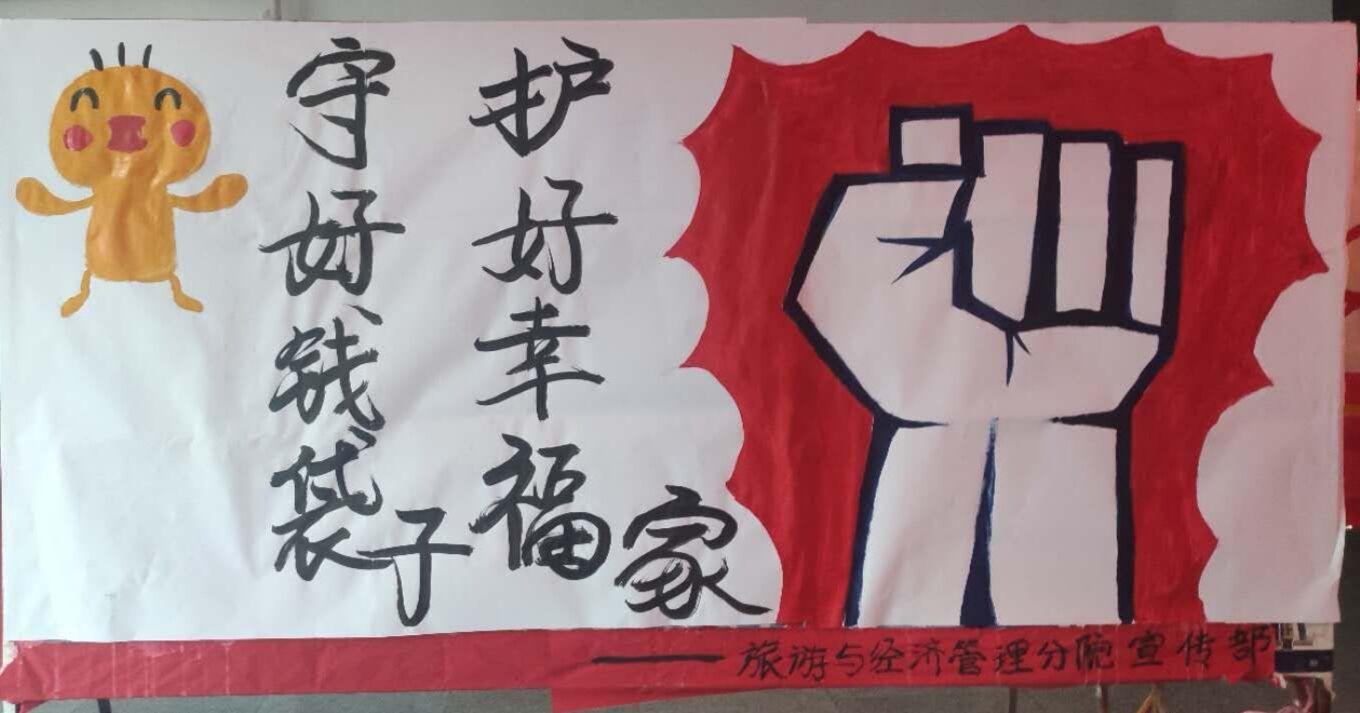 守好钱袋子
护好幸福家
——旅游与经济管理分院宣传部